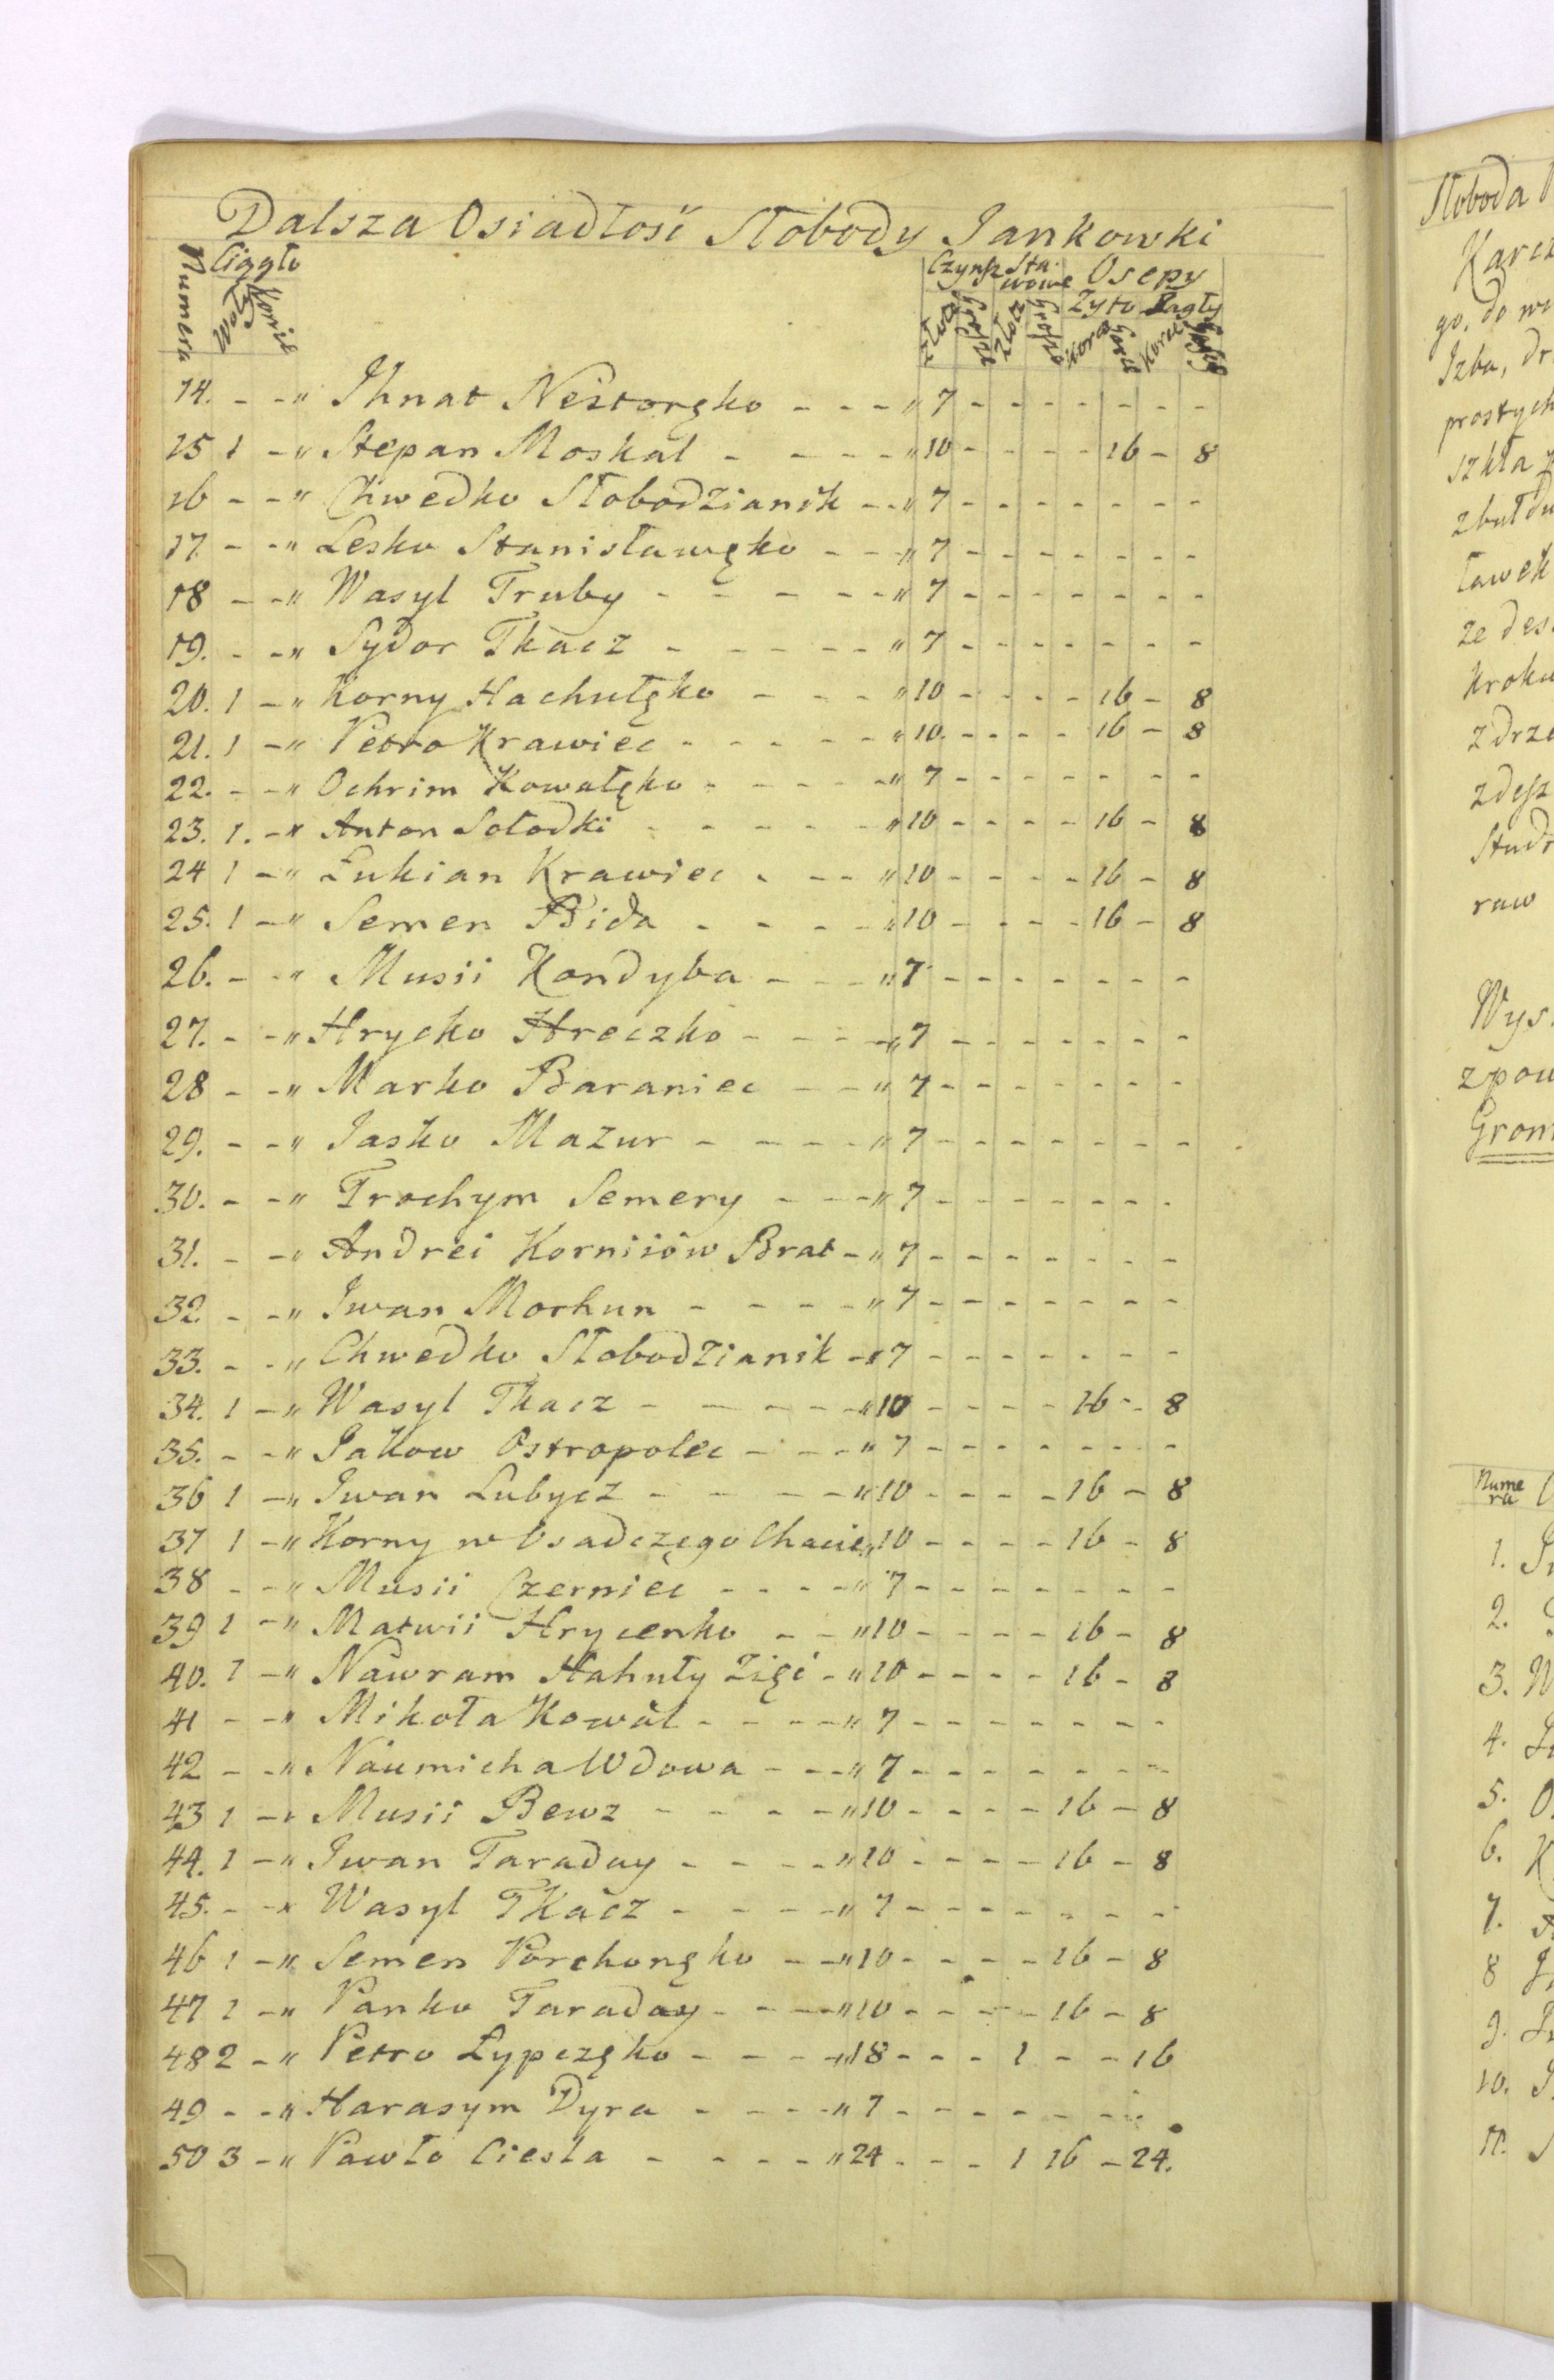 Dalsza Osiadłość Słobody Jankowki
Numera Ciągło Woły Konie Czynsz Stawowe Osepy
Żyto Jagły
Złote Grosze Złote Grosze Korce Garce Korce Garce
14. - - " Ihnat Nestoręko - - - " 7 - - - - - - -
15 1 - " Stepan Moskal - - - - " 10 - - - - 16 - 8
16 - - " Chwedko Słobodzianik - - " 7 - - - - - - -
17. - - " Lesko Stanisławęko - - " 7 - - - - - - -
18 - - " Wasyl Truby - - - - - " 7 - - - - - - -
19. - - " Sydor Tkacz - - - - - " 7 - - - - - - -
20. 1 - " Korny Hachułęko - - - - " 10 - - - - 16 - 8
21. 1 - " Petro Krawiec - - - - - " 10 - - - - 16 - 8
22. - - " Ochrim Kowałęko - - - - - " 7 - - - - - - -
23. 1. - " Anton Sołodki - - - - - " 10 - - - - 16 - 8
24 1 - " Łukian Krawiec - - - " 10 - - - - 16 - 8
25. 1 - " Semen Bida - - - - " 10 - - - - 16 - 8
26. - - " Musii Kondyba - - - " 7 - - - - - - -
27. - - " Hrycko Hreczko - - - - " 7 - - - - - - -
28 - - " Marko Baraniec - - " 7 - - - - - - -
29. - - " Jasko Mazur - - - - - " 7 - - - - - - -
30. - - " Trochym Semery - - - " 7 - - - - - - -
31. - - " Andrei Korniiów Brat - " 7 - - - - - - -
32. - - " Iwan Morhun - - - - - " 7 - - - - - - -
33. - - " Chwedko Słobodzianik - " 7 - - - - - - -
34. 1 - " Wasyl Tkacz - - - - - " 10 - - - - 16 - 8
35. - - " Jakow Ostropolec - - - - " 7 - - - - - - -
36 1 - " Iwan Lubycz - - - - - " 10 - - - - 16 - 8
37 1 - " Korny w Osadczego Chacie " 10 - - - - 16 - 8
38 - - " Musii Czerniec - - - - " 7 - - - - - - -
39 1 - " Matwii Hrycenko - - " 10 - - - - 16 - 8
40. 1 - " Nawram Hahuły Zięć - " 10 - - - - 16 - 8
41 - - " Mikoła Kowal - - - - " 7 - - - - - - -
42 - - " Naumicha Wdowa - - - " 7 - - - - - - -
43 1 - " Musii Bewz - - - - - " 10 - - - - 16 - 8
44. 1 - " Iwan Taraday - - - - " 10 - - - - 16 - 8
45. - - " Wasyl Tkacz - - - - - " 7 - - - - - - -
46 1 - " Semen Porchonęko - - " 10 - - - - 16 - 8
47 1 - " Panko Taraday - - - - " 10 - - - - 16 - 8
48 2 - " Petro Łypczęko - - - - " 18 - - - 1 - - 16
49 - - " Harasym Dyra - - - - " 7 - - - - - - -
50 3 - " Pawło Ciesla - - - - " 24 - - - 1 16 - 24.
Słoboda
go, do
Izba,
prostych
szkła
ławek
ze
Numera
1.
2.
3.
4.
5.
6.
7.
8
9.
10.
11.